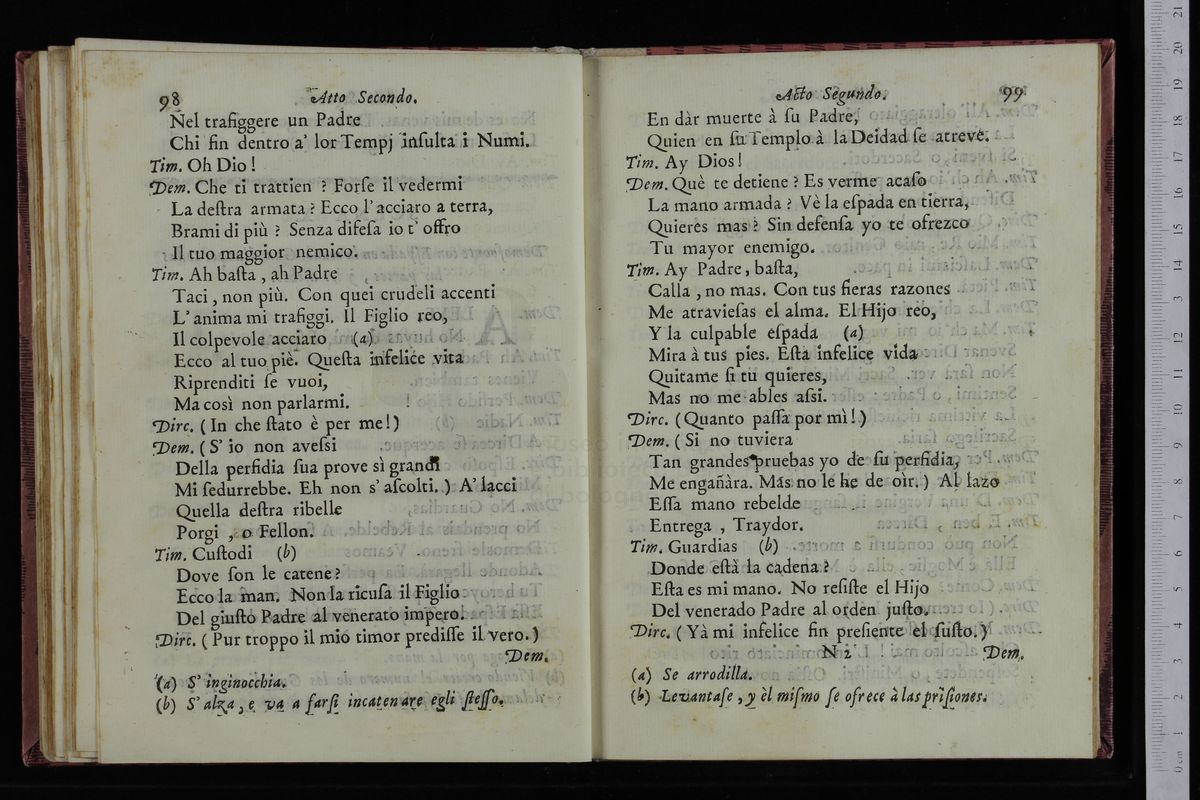 98 Atto Secondo.
Nel trafiggere un Padre
Chi fin dentro a' lor Tempj inſulta i Numi.
Tim. Oh Dio !
Dem. Che ti trattien ? Forſe il vedermi
La deſtra armata ? Ecco l' acciaro a terra,
Brami di più ? Senza difeſa io t' offro
Il tuo maggior nemico.
Tim. Ah baſta , ah Padre
Taci , non più. Con quei crudeli accenti
L' anima mi trafiggi. Il Figlio reo,
Il colpevole acciaro (a)
Ecco al tuo piè. Queſta infelice vita
Riprenditi ſe vuoi,
Ma così non parlarmi.
Dirc. ( In che ſtato è per me! )
Dem. ( S' io non aveſsi
Della perfidia ſua prove sì grandi
Mi ſedurrebbe. Eh non s' aſcolti. ) A' lacci
Quella deſtra ribelle
Porgi , o Fellon.
Tim. Cuſtodi (b)
Dove ſon le catene?
Ecco la man. Non la ricuſa il Figlio
Del giuſto Padre al venerato impero.
Dirc. ( Pur troppo il mio timor prediſſe il vero. )
Dem.
(a) S' inginocchia.
(b) S' alza , e va a farſi incatenare egli ſteſſo.
Acto Segundo. 99
En dàr muerte à ſu Padre,
Quien en ſu Templo à la Deidad ſe atreve.
Tim. Ay Dios !
Dem. Què te detiene ? Es verme acaſo
La mano armada ? Vè la eſpada en tierra,
Quieres mas ? Sin defenſa yo te ofrezco
Tu mayor enemigo.
Tim. Ay Padre , baſta,
Calla , no mas. Con tus fieras razones
Me atravieſas el alma. El Hijo reo,
Y la culpable eſpada (a)
Mira à tus pies. Eſta infelice vida
Quitame ſi tu quieres,
Mas no me ables aſsi.
Dirc. ( Quanto paſſa por mì ! )
Dem. ( Si no tuviera
Tan grandes pruebas yo de ſu perfidia,
Me engañàra. Màs no le he de oìr. ) Al lazo
Eſſa mano rebelde
Entrega , Traydor.
Tim. Guardias (b)
Donde eſtà la cadena ?
Eſta es mi mano. No reſiſte el Hijo
Del venerado Padre al orden juſto.
Dirc. ( Yà mi infelice fin preſiente el ſuſto. )
N 2 Dem.
(a) Se arrodilla.
(b) Levantaſe , y èl miſmo ſe ofrece à las priſiones.